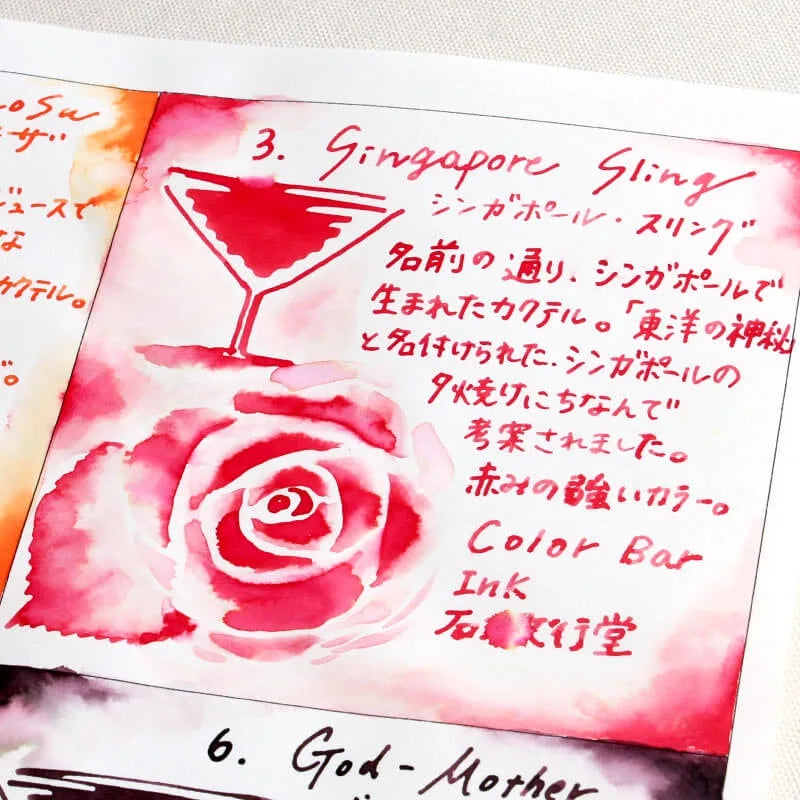 oSu
ーザ
ジュースで
な
カクテル。
ど。
3. Singapore Sling
シンガポール・スリング
名前の通り、シンガポールで
生まれたカクテル。「東洋の神秘
と名付けられた、シンガポールの
夕焼けにちなんで
考案されました。
赤みの強いカラー。
Color Bar
Ink
石文行堂
6. God-Mother